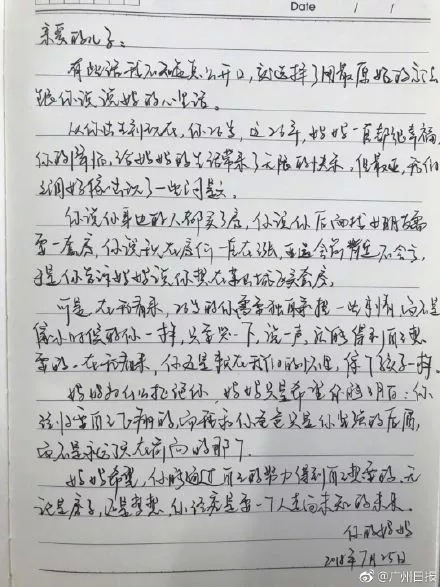 Date / /
亲爱的儿子：
有些话我不知道怎么开口，就选择了用最原始的方法
跟你说说妈的心里话。
从你出生到现在，你26岁，这26年，妈妈一直都很幸福，
你的降临，给妈妈的生活带来了无限的快乐，但最近，我们
之间好像出现了一些问题。
你说你身边的人都买了房，你说你后面结婚
要一套房，你说现在房价一直在涨，
于是你告诉妈妈说你想在买套房。
可是在我看来，26岁的你需要独自承担一些事情，而不是
像小时候的你一样，只要哭一下，说一声，就能得到自己想
要的。在我看来，你还是躲在我们的怀里，像个孩子一样。
妈妈为什么拒绝你，妈妈只是希望你能明白：你
终归要自己飞翔的，而我和你爸爸只是你坚强的后盾，
而不是永远顶在前面的那个。
妈妈希望，你能通过自己的努力得到自己想要的，无
论是房子，还是梦想，你终究是要一个人走向未知的未来。
你的妈妈
2018年7月25日
@广州日报